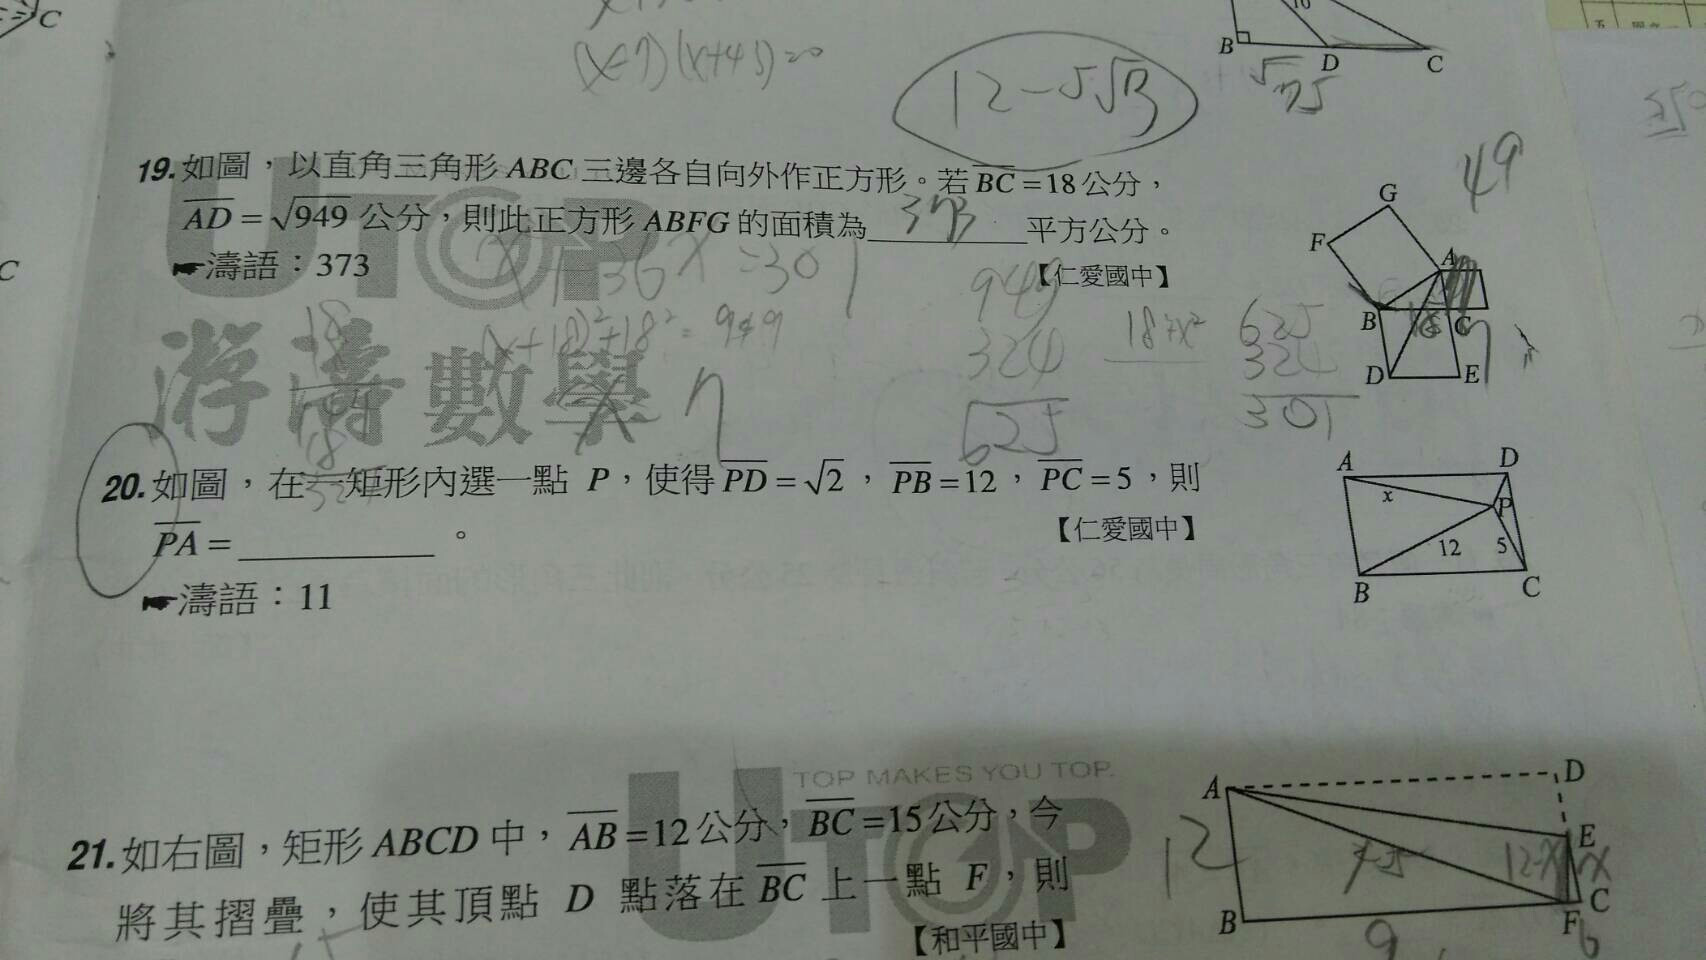 (x-7)(x+43)=0
12-5√13
10
B
D
C
√75
19.如圖，以直角三角形 ABC 三邊各自向外作正方形。若 BC =18公分，
AD = √949 公分，則此正方形 ABFG 的面積為 373 平方公分。
☛濤語：373
【仁愛國中】
49
G
F
A
B
C
D
E
18
(x+18)²+18²= 949
949
324
625
18²+x²
625
324
301
UTOP
游濤數學
20.如圖，在一矩形內選一點 P，使得 PD = √2 ，PB =12，PC =5，則
PA = 。
【仁愛國中】
☛濤語：11
A
D
x
P
12
5
B
C
TOP MAKES YOU TOP.
UTOP
21.如右圖，矩形 ABCD 中，AB =12公分，BC =15公分，今
將其摺疊，使其頂點 D 點落在 BC 上一點 F，則
【和平國中】
A
D
E
12
12-x
x
C
B
F
9
6